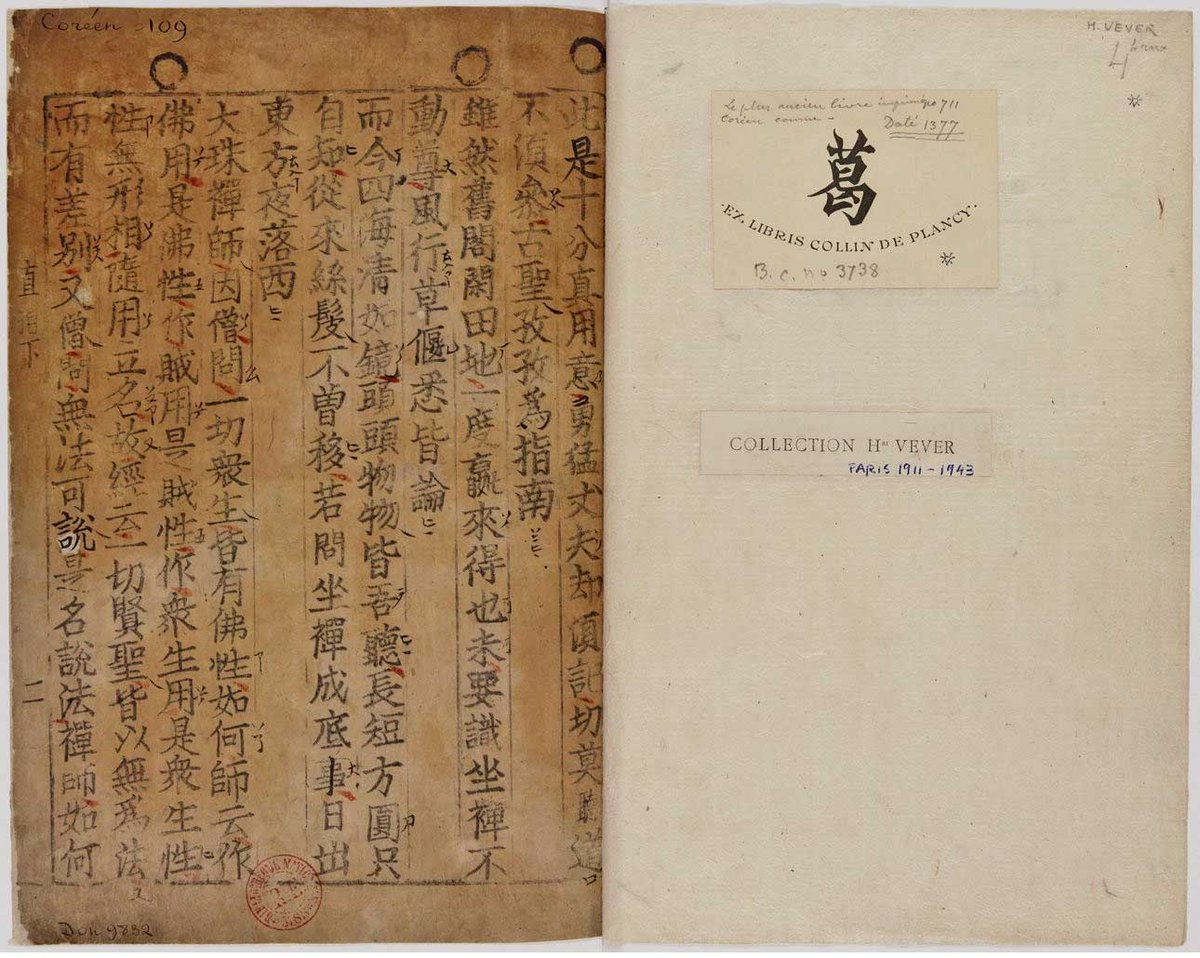 Coréen 109
此是十分真用意勇猛丈夫却須記切莫聽道
不須叅古聖孜孜爲指南
雖然舊閣閑田地一度贏來得也未要識坐禪不
動尊風行草偃悉皆論
而今四海清如鏡頭頭物物皆吾聽長短方圓只
自知從來絲髮不曾移若問坐禪成底事日出
東方夜落西
大珠禪師因僧問一切衆生皆有佛性如何師云作
佛用是佛性作賊用是賊性作衆生用是衆生性
性無形相隨用立名故經云一切賢聖皆以無爲法
而有差別又僧問無法可說是名說法禪師如何
直指下
二
Don 9832
H. VEVER
Le plus ancien livre imprimé 711
Coréen connu -
Daté 1377
葛
·EX LIBRIS COLLIN DE PLANCY·
B.C. no 3738
COLLECTION Hri VEVER
PARIS 1911-1943